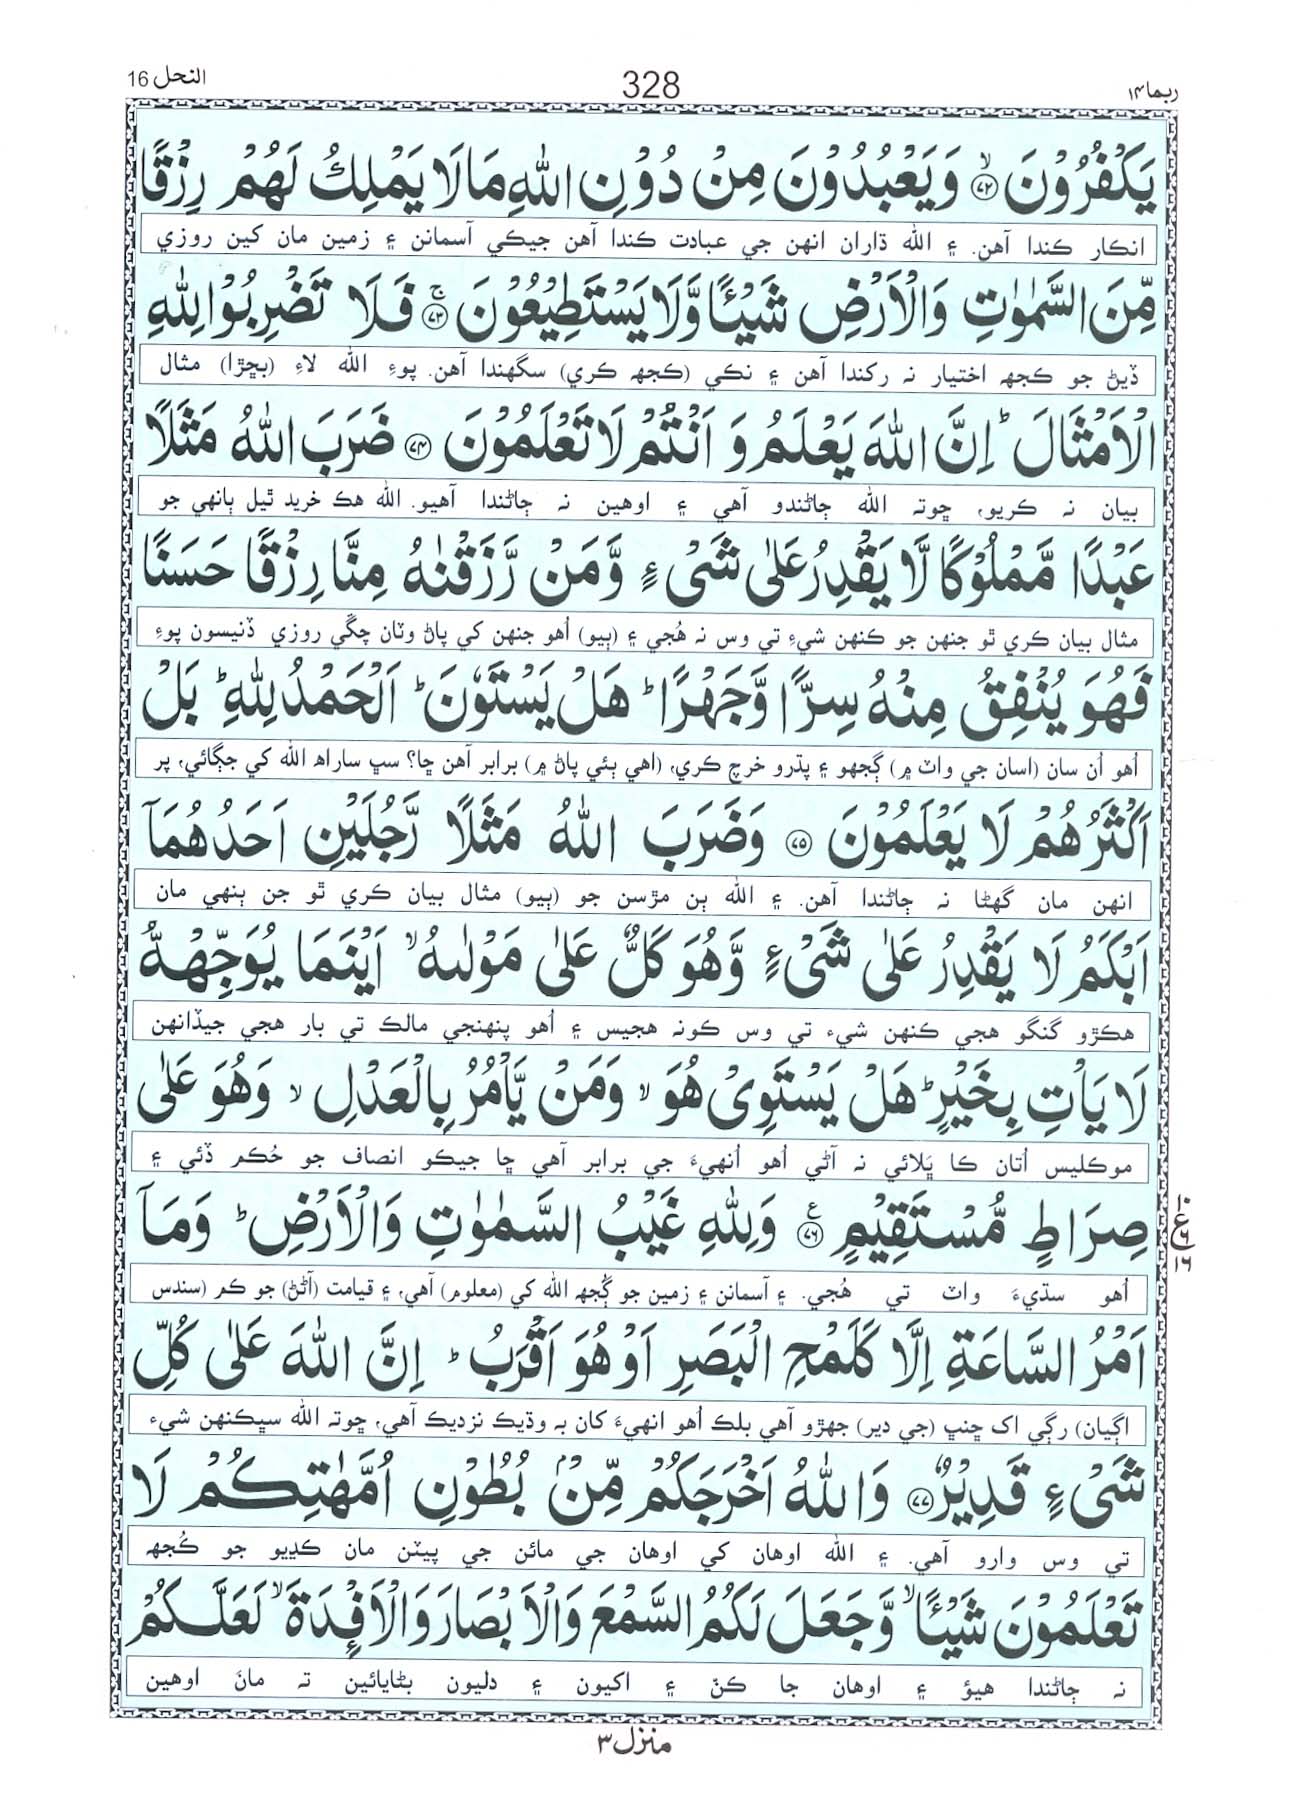 ربما ۱۴
328
النحل 16
يَكْفُرُوْنَ ۙ‏﴿۷۲﴾ وَيَعْبُدُوْنَ مِنْ دُوْنِ اللّٰهِ مَا لَا يَمْلِكُ لَهُمْ رِزْقًا
انڪار ڪندا آهن. ۽ الله ڌاران انهن جي عبادت ڪندا آهن جيڪي آسمانن ۽ زمين مان کين روزي
مِّنَ السَّمٰوٰتِ وَالْاَرْضِ شَيْـًٔا وَّلَا يَسْتَطِيْعُوْنَ ۚ‏﴿۷۳﴾ فَلَا تَضْرِبُوْا لِلّٰهِ
ڏيڻ جو ڪجهہ اختيار نہ رکندا آهن ۽ نڪي (ڪجهہ ڪري) سگهندا آهن. پوءِ الله لاءِ (بڇڙا) مثال
الْاَمْثَالَ ؕ اِنَّ اللّٰهَ يَعْلَمُ وَ اَنْتُمْ لَا تَعْلَمُوْنَ ﴿۷۴﴾ ضَرَبَ اللّٰهُ مَثَلًا
بيان نہ ڪريو، ڇوتہ الله ڄاڻندو آهي ۽ اوهين نہ ڄاڻندا آهيو. الله هڪ خريد ٿيل ٻانهي جو
عَبْدًا مَّمْلُوْكًا لَّا يَقْدِرُ عَلٰى شَیْءٍ وَّمَنْ رَّزَقْنٰهُ مِنَّا رِزْقًا حَسَنًا
مثال بيان ڪري ٿو جنهن جو ڪنهن شيءِ تي وس نہ هُجي ۽ (ٻيو) اُهو جنهن کي پاڻ وٽان چڱي روزي ڏنيسون پوءِ
فَهُوَ يُنْفِقُ مِنْهُ سِرًّا وَّجَهْرًا ؕ هَلْ يَسْتَوٗنَ ؕ اَلْحَمْدُ لِلّٰهِ ؕ بَلْ
اُهو اُن سان (اسان جي واٽ ۾) ڳجهو ۽ پڌرو خرچ ڪري، (اهي ٻئي پاڻ ۾) برابر آهن ڇا؟ سڀ ساراھ الله کي جڳائي، پر
اَكْثَرُهُمْ لَا يَعْلَمُوْنَ ﴿۷۵﴾ وَضَرَبَ اللّٰهُ مَثَلًا رَّجُلَيْنِ اَحَدُهُمَآ
انهن مان گھڻا نہ ڄاڻندا آهن. ۽ الله ٻن مڙسن جو (ٻيو) مثال بيان ڪري ٿو جن ٻنهي مان
اَبْكَمُ لَا يَقْدِرُ عَلٰى شَیْءٍ وَّهُوَ كَلٌّ عَلٰى مَوْلٰىهُ ۙ اَيْنَمَا يُوَجِّهْهُّ
هڪڙو گنگو هجي ڪنهن شيء تي وس ڪونہ هجيس ۽ اُهو پنهنجي مالڪ تي بار هجي جيڏانهن
لَا يَاْتِ بِخَيْرٍ ؕ هَلْ يَسْتَوِیْ هُوَ ۙ وَمَنْ يَّاْمُرُ بِالْعَدْلِ ۙ وَهُوَ عَلٰى
موڪليس اُتان ڪا ڀَلائي نہ آڻي اُهو اُنهيءَ جي برابر آهي ڇا جيڪو انصاف جو حُڪم ڏئي ۽
صِرَاطٍ مُّسْتَقِيْمٍ ؑ‏﴿۷۶﴾ وَلِلّٰهِ غَيْبُ السَّمٰوٰتِ وَالْاَرْضِ ؕ وَمَآ
اُهو سڌيءَ واٽ تي هُجي. ۽ آسمانن ۽ زمين جو ڳُجهہ الله کي (معلوم) آهي، ۽ قيامت (آڻڻ) جو ڪم (سندس
اَمْرُ السَّاعَةِ اِلَّا كَلَمْحِ الْبَصَرِ اَوْ هُوَ اَقْرَبُ ؕ اِنَّ اللّٰهَ عَلٰى كُلِّ
اڳيان) رڳي اک ڇنڀ (جي دير) جهڙو آهي بلڪ اُهو انهيءَ کان بہ وڌيڪ نزديڪ آهي، ڇوتہ الله سڀڪنهن شيء
شَیْءٍ قَدِيْرٌ ﴿۷۷﴾ وَاللّٰهُ اَخْرَجَكُمْ مِّنْۢ بُطُوْنِ اُمَّهٰتِكُمْ لَا
تي وس وارو آهي. ۽ الله اوهان کي اوهان جي مائن جي پيٽن مان ڪڍيو جو ڪُجهہ
تَعْلَمُوْنَ شَيْـًٔا ۙ وَّجَعَلَ لَكُمُ السَّمْعَ وَالْاَبْصَارَ وَالْاَفْـِٕدَةَ ۙ لَعَلَّكُمْ
نہ ڄاڻندا هيؤ ۽ اوهان جا ڪنّ ۽ اکيون ۽ دليون بڻايائين تہ مانَ اوهين
منزل ۳